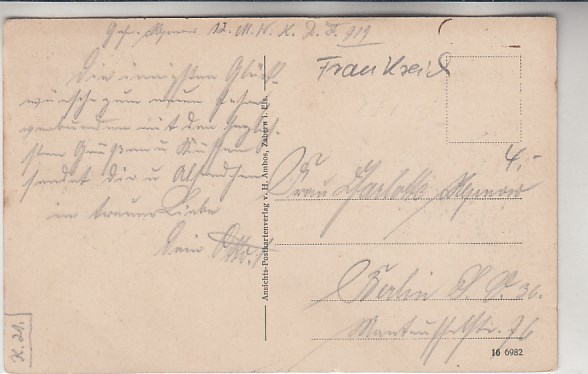 Gef. 12. M. W. K. D. F. 919
Die innigsten Glück-
wünsche zum neuen Jahre
verbunden mit den herzlich-
sten Grüßen u Küssen
sendet Dir u Alfredchen
in treuer Liebe
Dein Otto.
Frankreich
4.-
Frau Charlotte
Berlin S. O. 36.
Manteuffelstr. 76
Ansichts-Postkartenverlag v. H. Ambos, Zabern i. Els.
16 6982
K. 21.